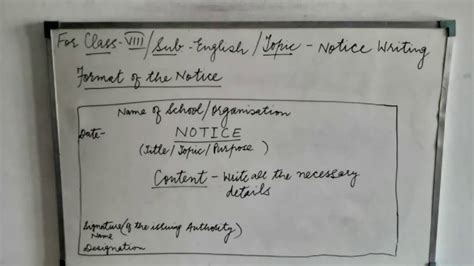 For Class-VIII/Sub-English/Topic-Notice Writing
Format of the Notice
Name of School/Organisation
Date- NOTICE
(Title/Topic/Purpose)
Content - Write all the necessary
details
Signature (of the issuing Authority)
Name
Designation